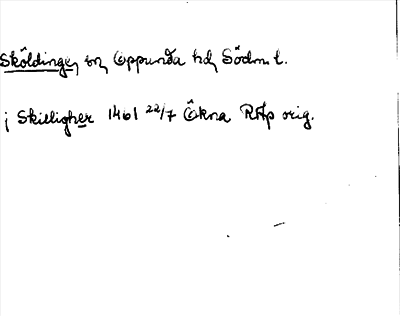 Sköldinge, sn, Oppunda hd, Södm. l.
j Skilligher 1461 22/7 Ökna RAp orig.